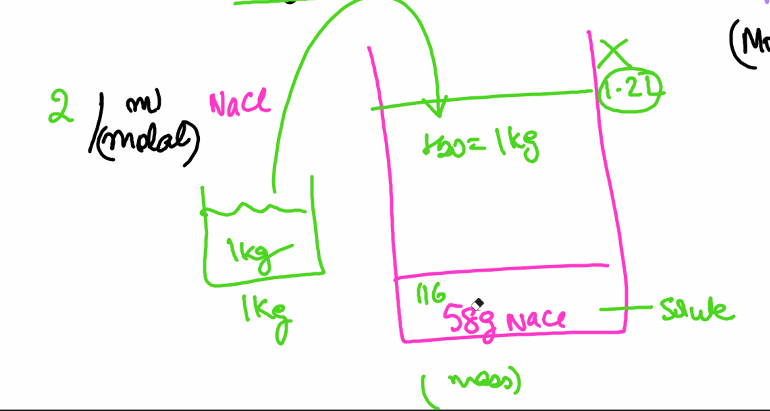 (M
X
1.2L
2 / m NaCl
(molal)
H2O = 1kg
1kg
1Kg
116
58g NaCl
Solute
(mass)